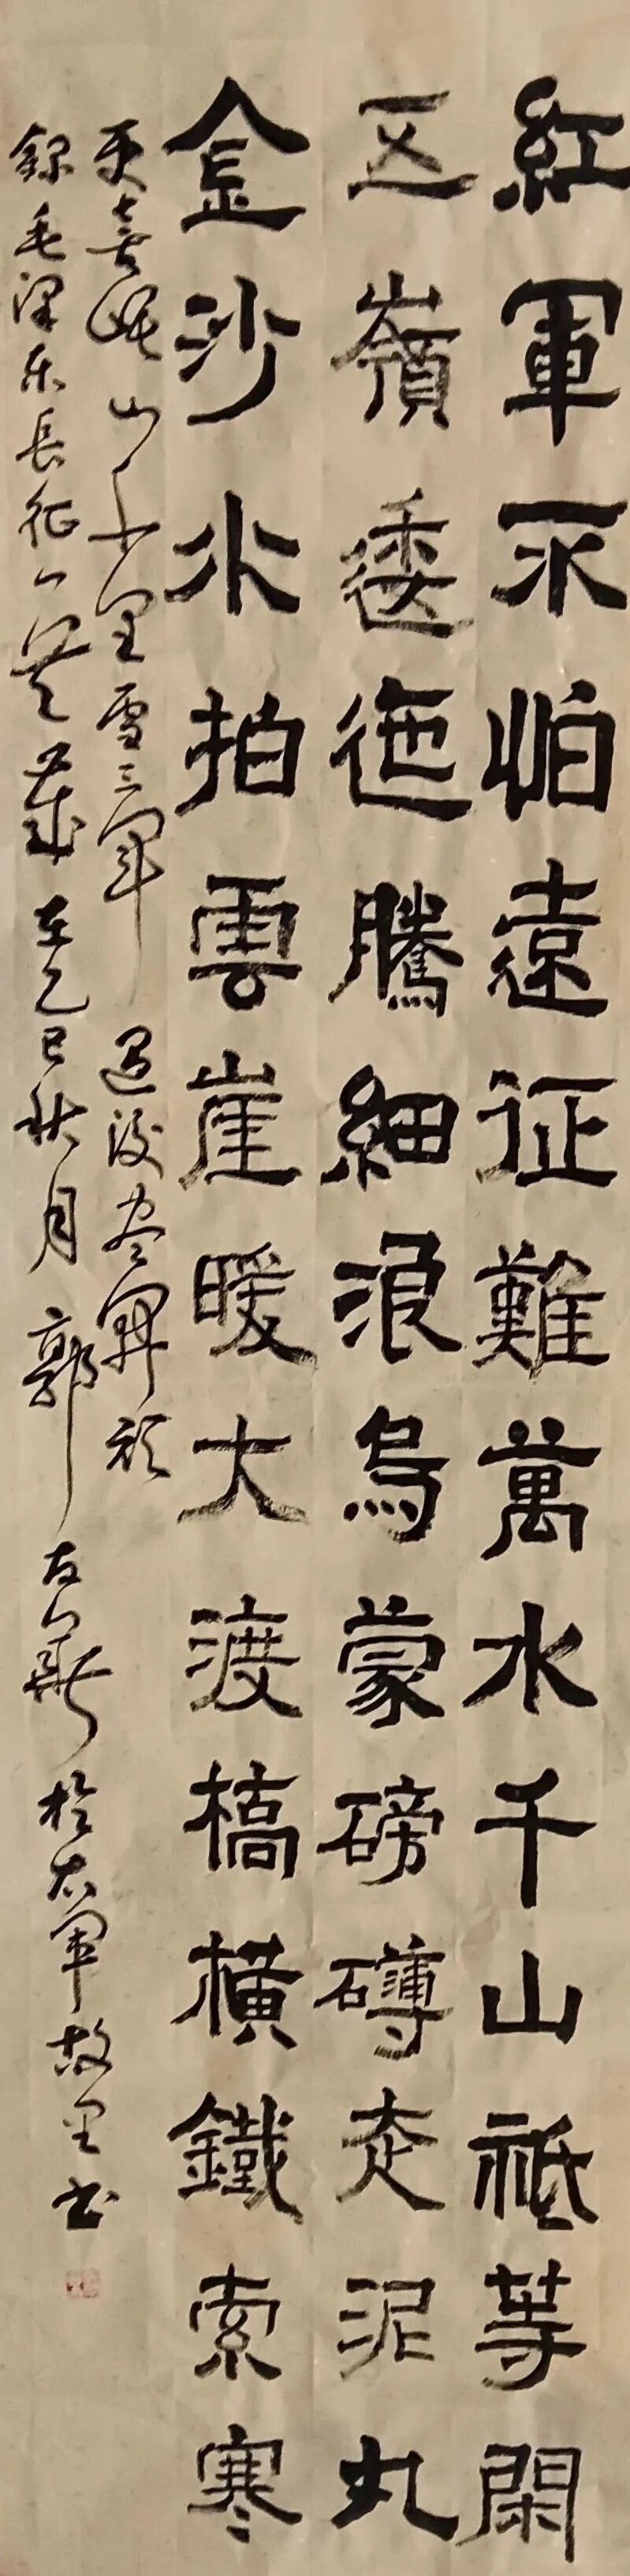 紅軍不怕遠征難萬水千山祇等閑
五嶺逶迤騰細浪烏蒙磅礴走泥丸
金沙水拍雲崖暖大渡橋橫鐵索寒
更喜岷山千里雪三軍過後尽開顏
錄毛澤东長征一首 歲在乙巳秋月郭友華於右軍故里书